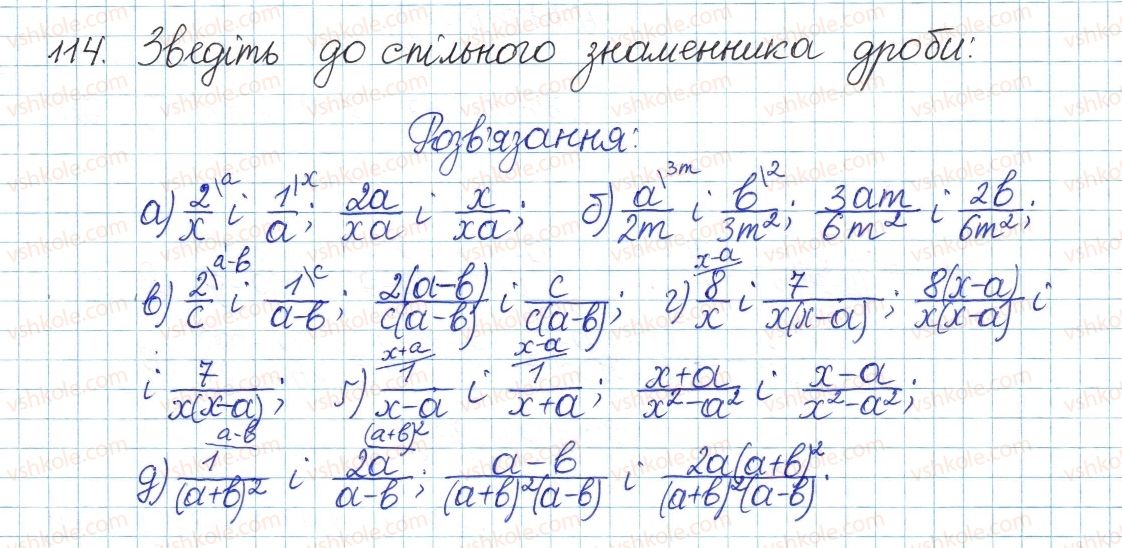 114. Зведіть до спільного знаменника дроби:
Розв'язання:
а) 2/x \a і 1/a \x; 2a/xa і x/xa; б) a/2m \3m і b/3m² \2; 3am/6m² і 2b/6m²;
в) 2/c \a-b і 1/a-b \c; 2(a-b)/c(a-b) і c/c(a-b); г) 8/x x-a і 7/x(x-a); 8(x-a)/x(x-a) і
і 7/x(x-a); ґ) 1/x-a x+a і 1/x+a x-a; x+a/x²-a² і x-a/x²-a²;
д) 1/(a+b)² a-b і 2a/a-b (a+b)²; a-b/(a+b)²(a-b) і 2a(a+b)²/(a+b)²(a-b).
vshkole.com